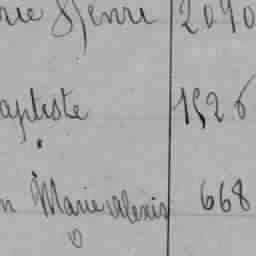 rie Henri 2090
aptiste 1526
n Marie Alexis 668